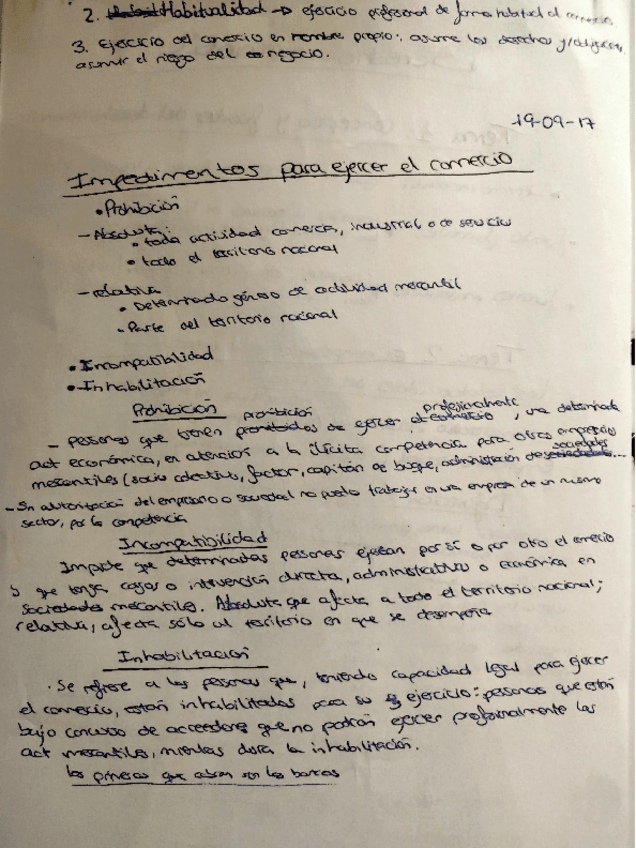 2. Habitualidad → ejercicio profesional de forma habitual el comercio.
3. Ejercicio del comercio en nombre propio: asume los derechos y obligaciones,
asumir el riesgo del negocio.
19-09-17
Impedimentos para ejercer el comercio
• Prohibición
- Absoluta:
• toda actividad comercial, industrial o de servicio
• todo el territorio nacional
- relativa
• Determinado género de actividad mercantil
- Parte del territorio nacional
• Incompatibilidad
• Inhabilitación
Prohibición
- personas que tienen prohibición de ejercer profesionalmente, una determinada
act económica, en atención a la ilícita competencia para otros empresarios
mercantiles (socio colectivo, factor, capitán de buque, administración de sociedades...
- Sin autorización del empresario o sociedad no puedo trabajar en una empresa de un mismo
sector, por la competencia
Incompatibilidad
Impide que determinadas personas ejerzan por sí o por otro el comercio
y que tenga cargos o intervención directa, administrativa o económica en
sociedades mercantiles. Absoluta que afecta a todo el territorio nacional;
relativa, afecta sólo al territorio en que se desempeña
Inhabilitación
· Se refiere a las personas que, teniendo capacidad legal para ejercer
el comercio, están inhabilitados para su ejercicio: personas que están
bajo concurso de acreedores que no podrán ejercer profesionalmente las
act mercantiles, mientras dura la inhabilitación.
los primeros que cobran son los bancos